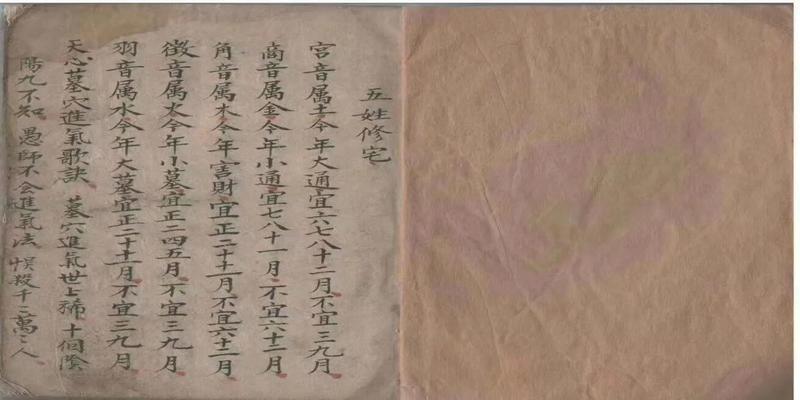 五姓修宅
宫音属土今年大通宜六七八十二月不宜三九月
商音属金今年小通宜七八十一月不宜六十二月
角音属木今年害財宜正二十十一月不宜六十二月
徵音属火今年小墓宜正二四五月不宜三九月
羽音属水今年大墓宜正二十十一月不宜三九月
天心墓穴進氣歌訣 墓穴進氣世上稀十個陰
陽九不知愚師不会進氣法悞殺千千萬萬人